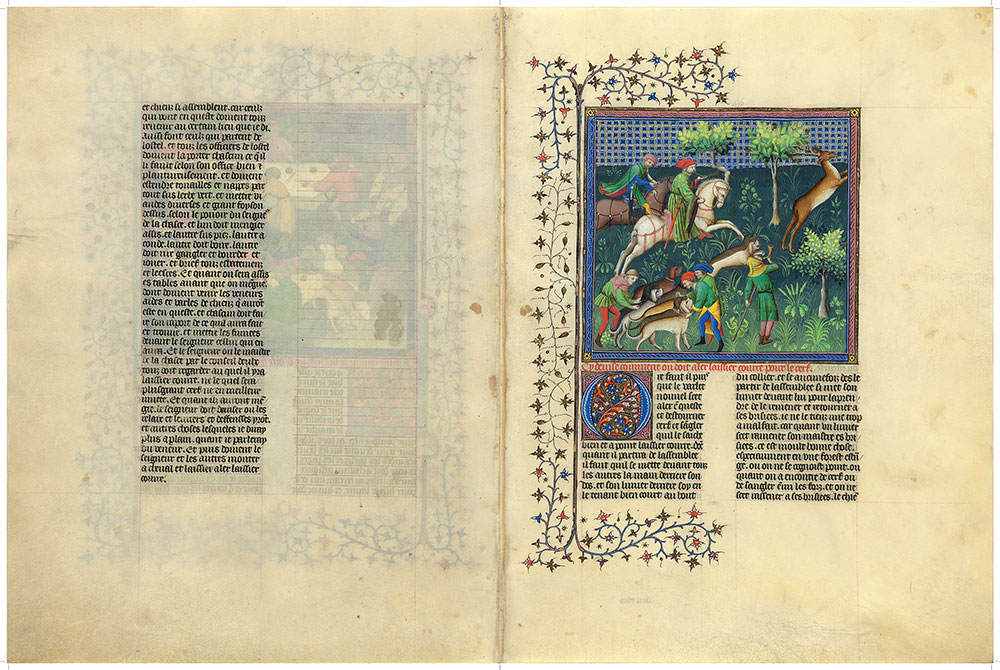 et chiens si assemblent. car ceulz
qui vont en queste doivent tous
revenir au certain lieu que ie di.
Aussi font ceulz qui partent de
lostel. et tous les officiers de lostel
doivent la porter chascun ce qil
li fault selon son office bien et
plantureusement. et doivent
estendre touailles et napes par
tout sus lerbe vert. et mettre vi
andes diverses et grant foyson
dessus. selon le pouoir du seigneur
de la chasse. et lun doit mengier
assis. et lautre sus piez. lautre a
coude. lautre doit boire. lautre
doit rire gangler et bourder et
iouer. et brief tous esbatemens
et leesces. Et quant on sera assis
es tables avant que on mengue.
dont doivent venir les veneurs
aides et varles de chiens quauront
este en queste. et chascun doit fai
re son raport de ce quil aura fait
et trouve. et mettre les fumees
devant le seigneur celuy qui en
aura. Et le seigneur ou le maistre
de la chasse par le conseil deulx
tous doit regarder au quel il yra
laissier courre. ne le quel sera
plus grant cerf ne en meilleur
muete. Et quant ilz auront men
gie. le seigneur doit deviser ou les
relaiz et levriers et deffenses yront.
et autres choses lesqueles ie diray
plus a plain. quant ie parleray
du veneur. Et puis doivent le
seigneur et les autres monter
a cheval et laissier aler laissier
courre.
Cy devise comment on doit aler laissier courre pour le cerf.
Or fault il puis
que le varlet
nouvel scet
aler en queste
et destourner
cerf et sangler
quil le sache
bien et a point laissier courre. Donc
quant il partira de lassemblee
il fault quil se mette devant tous
les autres la main derriere son
dos. et son limier derriere soy en
le tenant bien court au bout
du collier. et se aucunefois des le
partir de lassemblee si met son
limier devant lui pour lapren
dre de le remener et retourner a
ses brisiees. ie ne le tieng mie trop
a mal fait. car quant un limier
scet ramener son maistre es bri
siees. cest moult bonne chose.
especiaument en une forest estran
ge. ou on ne se cognoist point. ou
quant on a encontre de cerf ou
de sangler emi les fors. et on ne
scet assener a ses brisiees. le chien